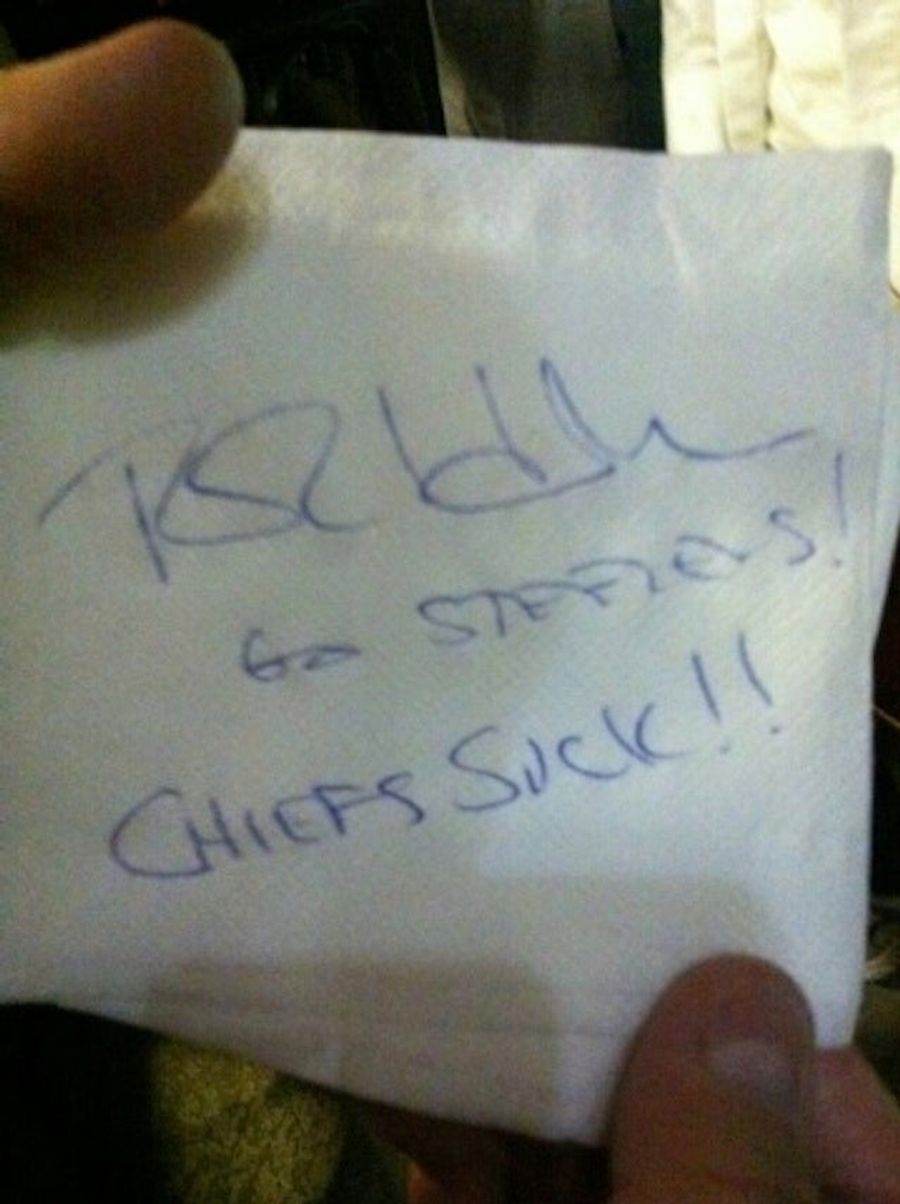 Go STEELERS!
CHIEFS SUCK!!